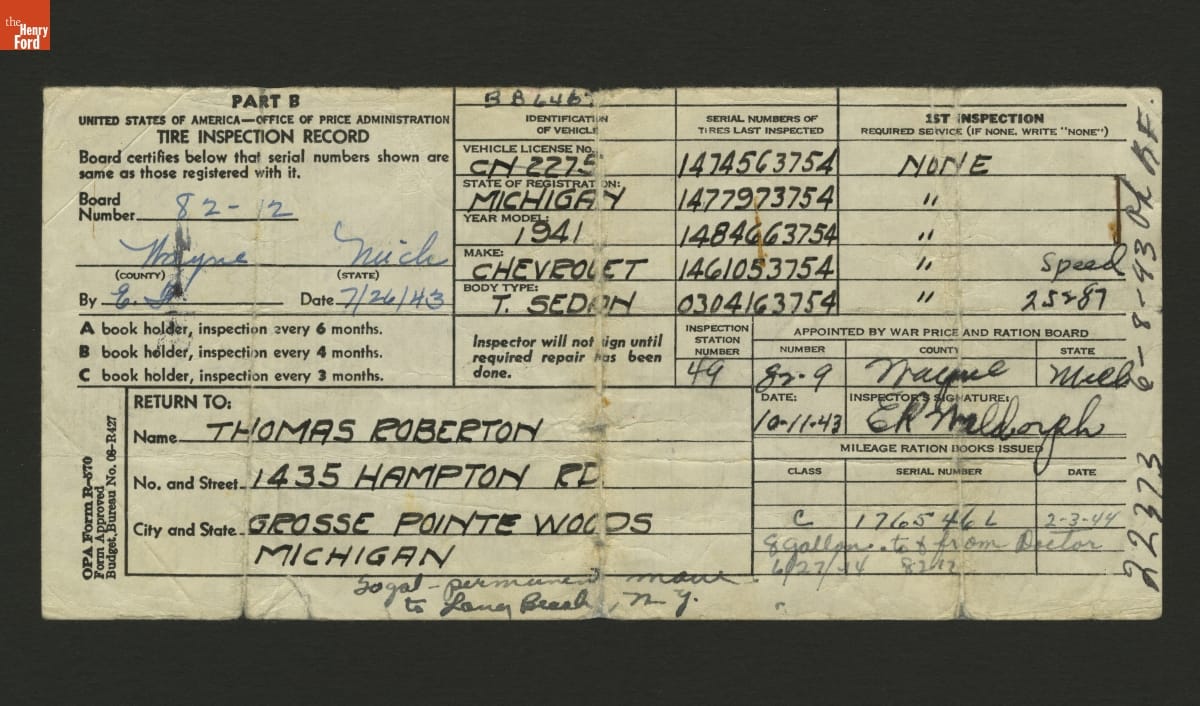 the
Henry
Ford
PART B
UNITED STATES OF AMERICA—OFFICE OF PRICE ADMINISTRATION
TIRE INSPECTION RECORD
Board certifies below that serial numbers shown are
same as those registered with it.
Board
Number 82-12
Wayne Mich
(COUNTY) (STATE)
By Date 7/26/43
A book holder, inspection every 6 months.
B book holder, inspection every 4 months.
C book holder, inspection every 3 months.
IDENTIFICATION
OF VEHICLE
VEHICLE LICENSE No.
CN-2275
STATE OF REGISTRATION:
MICHIGAN
YEAR MODEL:
1941
MAKE:
CHEVROLET
BODY TYPE:
T. SEDAN
SERIAL NUMBERS OF
TIRES LAST INSPECTED
1474563754
1477973754
1484663754
1461053754
0304163754
1ST INSPECTION
REQUIRED SERVICE (IF NONE, WRITE "NONE")
NONE
"
"
" Speed
" 25287
Inspector will not sign until
required repair has been
done.
INSPECTION
STATION
NUMBER
49
APPOINTED BY WAR PRICE AND RATION BOARD
NUMBER COUNTY STATE
82-9 Wayne Mich
DATE: INSPECTOR'S SIGNATURE:
10-11-43
MILEAGE RATION BOOKS ISSUED
CLASS SERIAL NUMBER DATE
C 1765461 2-3-44
8 gallon to & from Doctor
6/27/44 8212
RETURN TO:
Name THOMAS ROBERTON
No. and Street 1435 HAMPTON RD
City and State GROSSE POINTE WOODS
MICHIGAN
OPA Form R-570
Form Approved
Budget Bureau No. 08-R427
permanent move
to Long Beach, N.Y.
22373 6-8-43